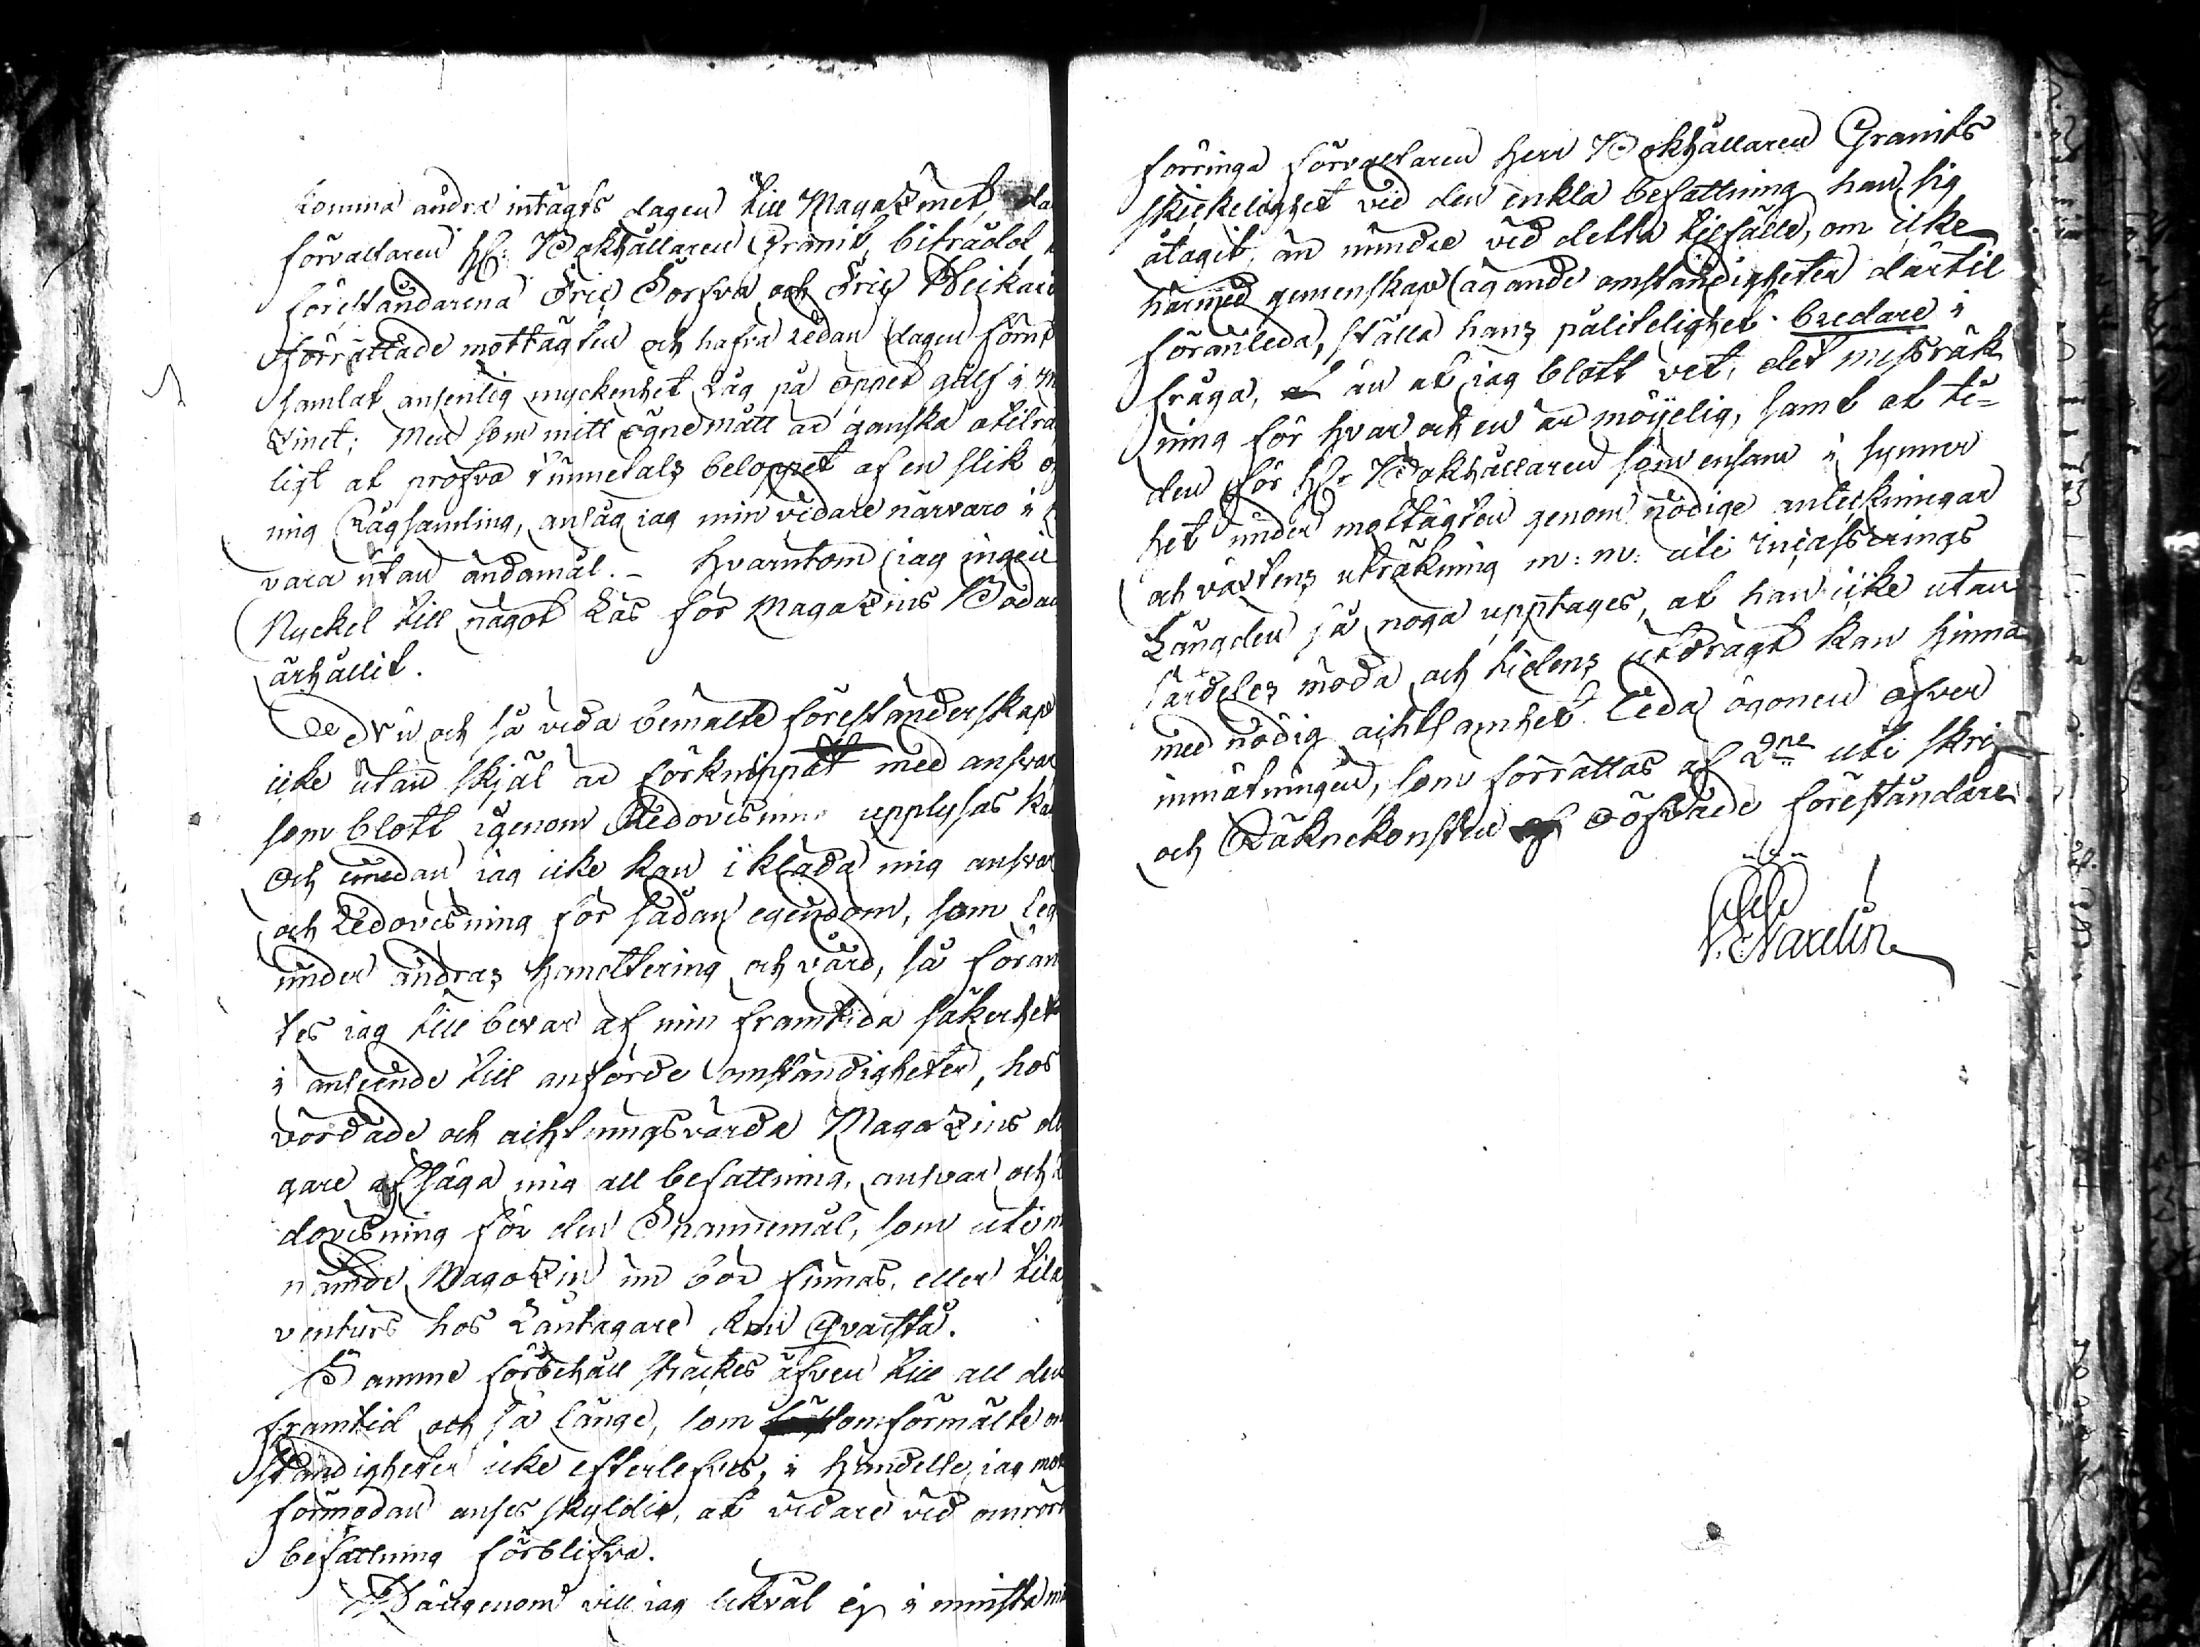 komma andra intägts dagen till Magazinet, da
förvaltaren Hr: Bokhållaren Granit, biträdd
föreståndarena Eric Sorfva och Eric Heikari
förrättade mottagten och hafva redan dagen förut
samlat ansenlig myckenhet Råg på öppet gålf i Ma
zinet; Men som mitt ögnemått är ganska otilrä
ligt at pröfva tunnetals beloppet af en slik
ning Rågsamling, ansåg jag min vidare närvaro i
vara utan ändamål. - Hvarutom jag ingen
Nyckel till något Lås för Magazins Bodan
ärhållit.
De nu och så vida bemälte föreståndarskap
icke utan skjäl är förknippat med ansvar
som blott igenom Redovisning upplysas ka
Och emedan jag icke kan ikläda mig ansvar
och Redovisning för sådan egendom, som leg
under andras handtering och vård, så föran
tes jag till bevar af min framtida säkerhet
i anseende till anförde omständigheter, hos
vördade och acktningsvärda Magazins del
gare afsäga mig all befattning, ansvar och
dovisning för den Spannemål, som uti
nämde Magazin nu bör finnas, eller til
venturs hos Låntagare kan qvarstå.
Samme förbehåll sträckes äfven till all den
framtid och så länge, som omförmälte om
ständigheter icke efterlefves, i händelse jag mot
förmodan anses skyldig, at vidare vid omrört
befattning förblifva.
Härigenom vill jag likväl ej i minsta må
förringa förvaltaren Herr Bokhållaren Granits
skickelighet vid den enkla befattning han sig
åtagit, än mindre vid detta tilfälle, om icke
härmed gemenskap ägande omständigheter därtil
föranleda, ställa hans pålitelighet bredare i
fråga, än at jag blott vet, det missräk
ning för hvar och en är möijelig, samt at ti=
den för Hr Bokhållaren som ensam i synner
het under mottagten genom nödige anteckningar
och växtens uträkning m: m: uti Incasserings
Längden så noga upptages, at han icke utan
särdeles möda och tidens utdrägt kan hinna
med nödig acktsamhet leda ögonen öfver
inmätningen, som förrättas af 2ne uti skrif
och Räknekonsten oöfvade föreståndare